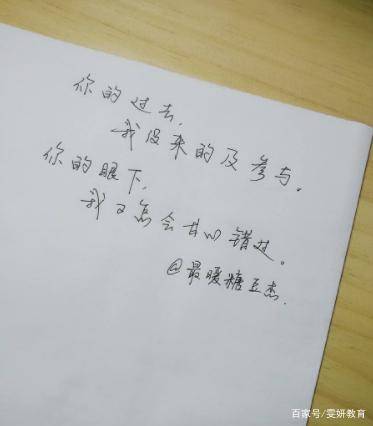 你的过去，
我没来的及参与。
你的眼下，
我又怎会甘心错过。
@最暖糖豆杰.
百家号/雯妍教育